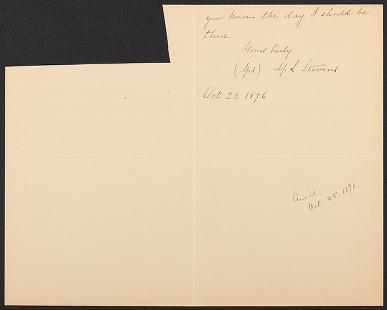 you know the day I should be
there.
Yours truly
(Mrs) M. L. Stevens
Oct 22 1896
Oct. 25, 1896.